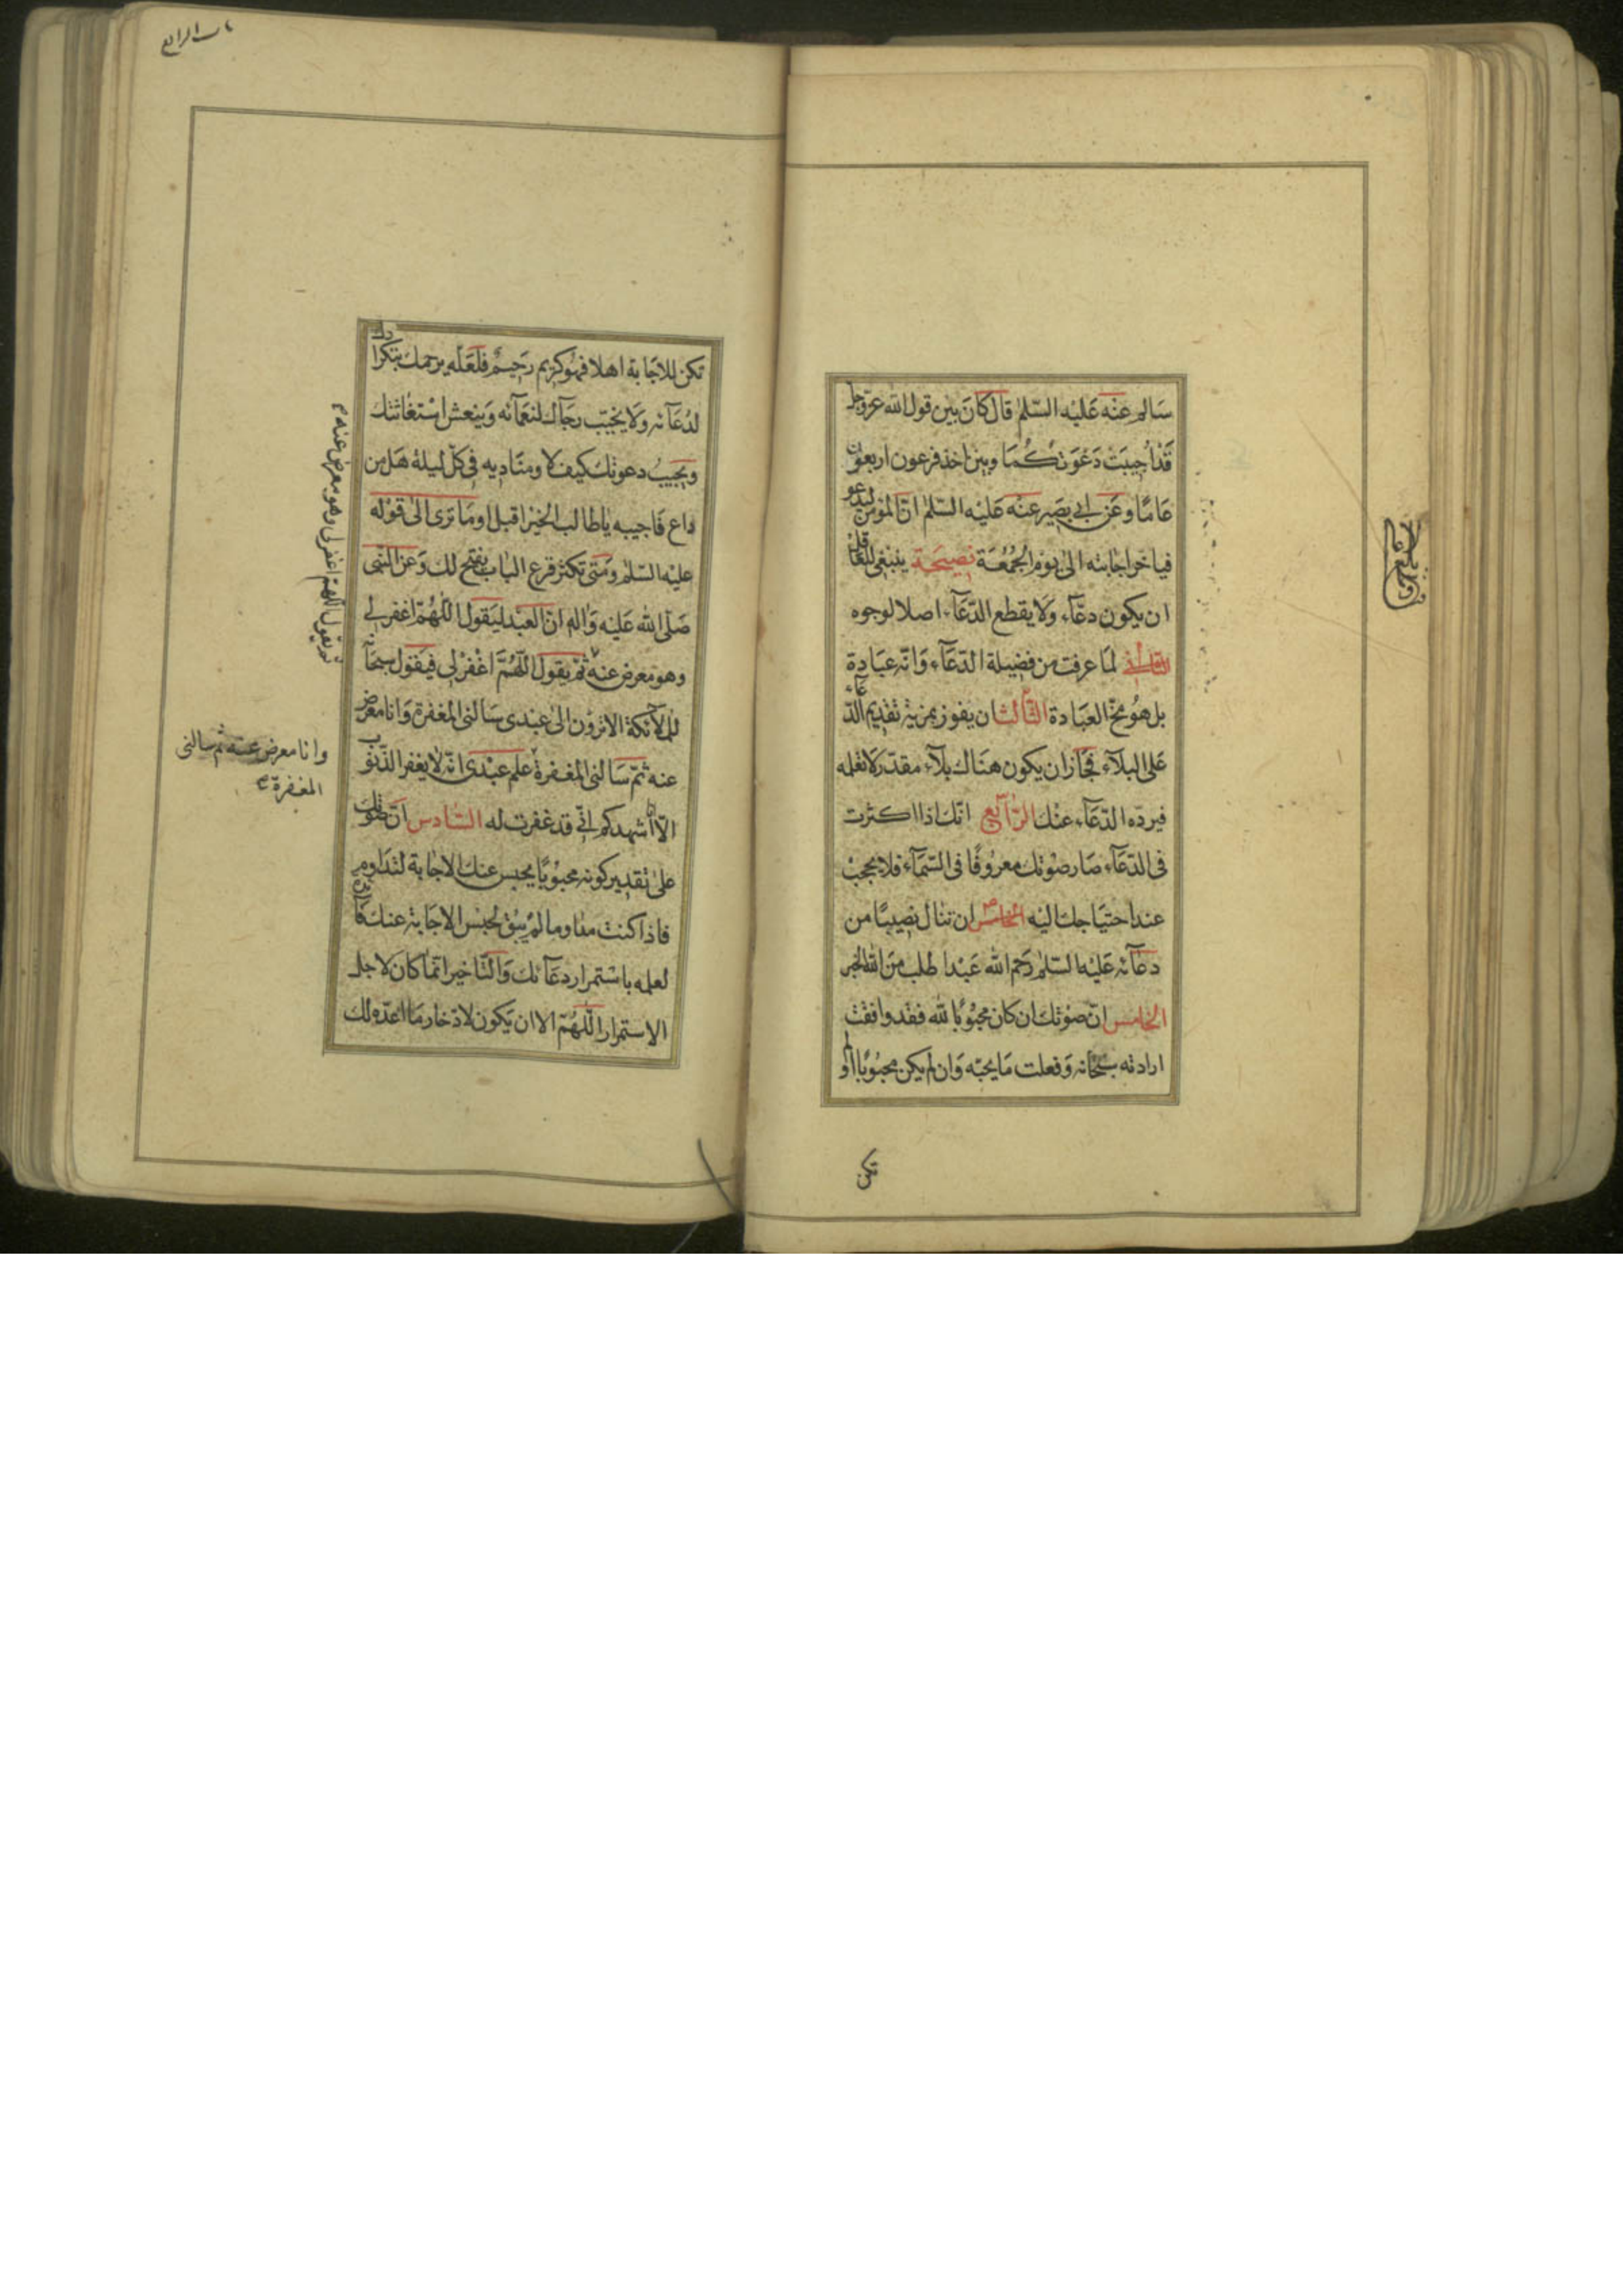 سالم عنه عليه السلم قال كان بين قول الله عز وجل
قد اجيبت دعوتكما وبين اخذ فرعون اربعون
عاما وعن ابي بصير عنه عليه السلم ان المؤمن ليدعو
فياخر اجابته الى يوم الجمعة نصيحة ينبغي للعاقل
ان يكون دعاء ولا يقطع الدعاء اصلا لوجوه
الثاني لما عرفت من فضيلة الدعاء وانه عبادة
بل هو مخ العبادة الثالث ان يفوز بمزية تقديم الدعاء
على البلاء فجاز ان يكون هناك بلاء مقدر لا تعلمه
فيرده الدعاء عنك الرابع انك اذا اكثرت
في الدعاء صار صوتك معروفا في السماء فلا يحجب
عند احتياجك اليه الخامس ان تنال نصيبا من
دعائه عليه السلم رحم الله عبدا طلب من الله
الخامس ان صوتك ان كان محبوبا لله فقد وافقت
ارادته سبحانه وفعلت ما يحبه وان لم يكن محبوبا او لم
تكن
باب الرابع
تكن للاجابة اهلا فهو كريم رحيم فلعله يرحمك بتكرارك
لدعائه ولا يخيب رجاك لنعمائه وينعش استغاثتك
ويجيب دعوتك كيف لا ومناديه في كل ليلة هل من
داع فاجيبه يا طالب الخير اقبل اوما ترى الى قوله
عليه السلم ومتى تكثر قرع الباب يفتح لك وعن النبي
صلى الله عليه واله ان العبد ليقول اللهم اغفر لي
وهو معرض عنه ثم يقول اللهم اغفر لي فيقول سبحانه
للملائكة الا ترون الى عبدي سالني المغفرة وانا معرض
عنه ثم سالني المغفرة علم عبدي انه لا يغفر الذنوب
الا انا اشهدكم اني قد غفرت له السادس ان صوتك
على تقدير كونه محبوبا يحبس عنك الاجابة لتداوم
فاذا كنت مداوما لم يبق لحبس الاجابة عنك فائدة
لعلمه باستمرار دعائك والتاخير انما كان لاجل
الاستمرار اللهم الا ان يكون لادخار ما اعده لك
ثم يقول اللهم اغفر لي وهو معرض عنه
وانا معرض عنه ثم سالني
المغفرة